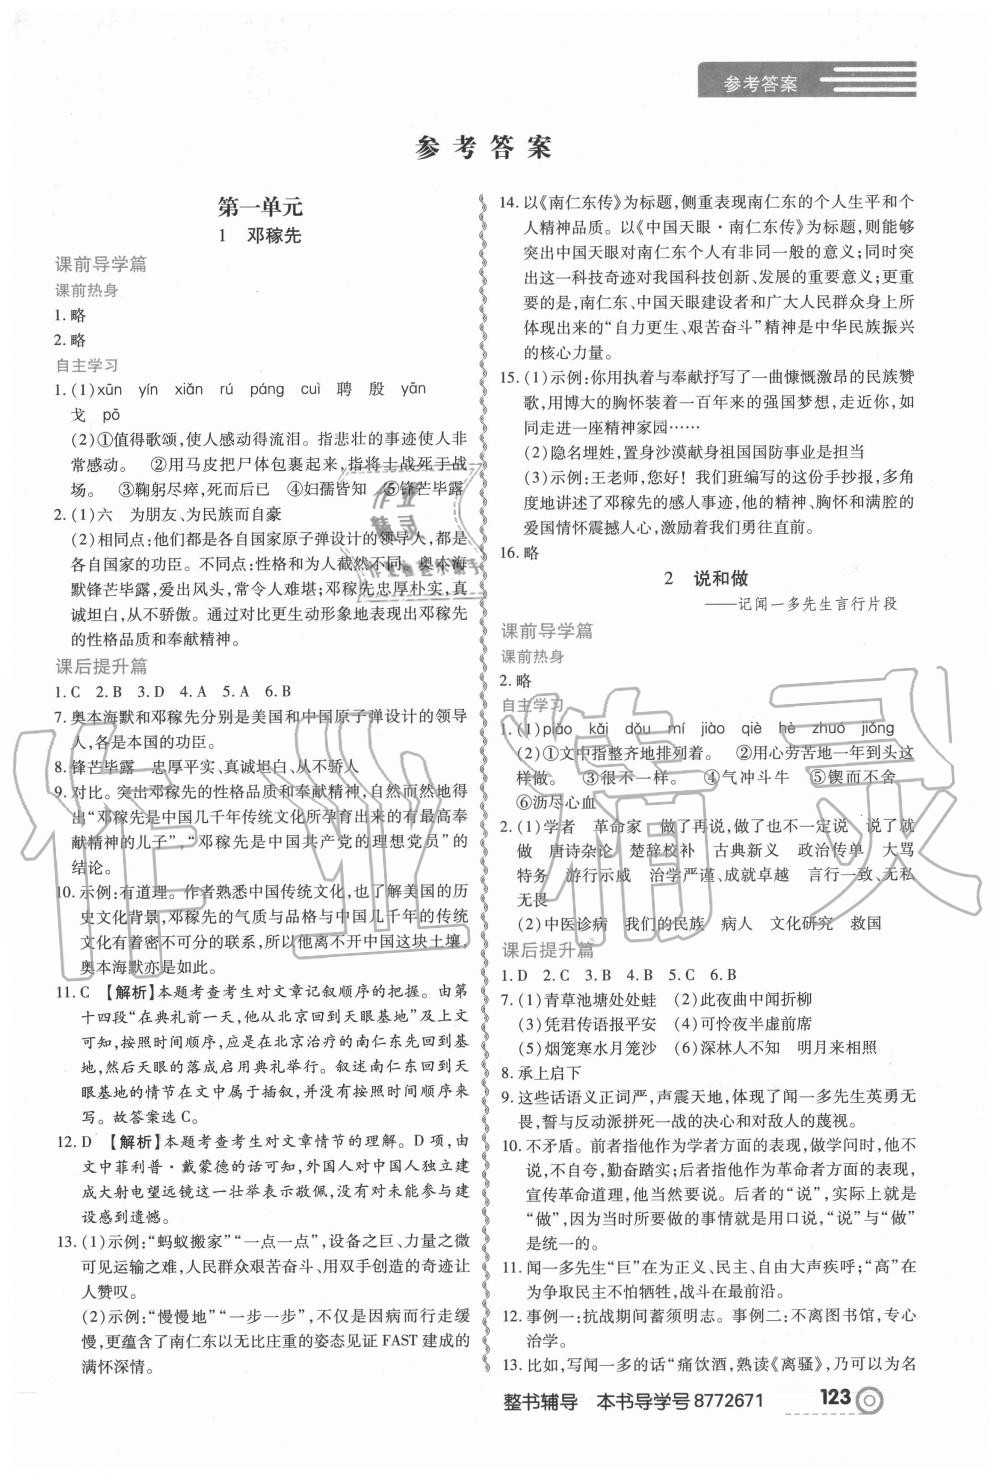 参考答案
参考答案
第一单元
1 邓稼先
课前导学篇
课前热身
1.略
2.略
自主学习
1.(1)xūn yín xiǎn rú páng cuì 聘 殷 yān
戈 pō
(2)①值得歌颂,使人感动得流泪。指悲壮的事迹使人非
常感动。 ②用马皮把尸体包裹起来,指将士战死于战
场。 ③鞠躬尽瘁,死而后已 ④妇孺皆知 ⑤锋芒毕露
2.(1)六 为朋友、为民族而自豪
(2)相同点:他们都是各自国家原子弹设计的领导人,都
是各自国家的功臣。不同点:性格和为人截然不同。奥本海
默锋芒毕露,爱出风头,常令人难堪;邓稼先忠厚朴实,真
诚坦白,从不骄傲。通过对比更生动形象地表现出邓稼先
的性格品质和奉献精神。
课后提升篇
1.C 2.B 3.D 4.A 5.A 6.B
7.奥本海默和邓稼先分别是美国和中国原子弹设计的领导
人,各是本国的功臣。
8.锋芒毕露 忠厚平实、真诚坦白、从不骄人
9.对比。突出邓稼先的性格品质和奉献精神,自然而然地得
出“邓稼先是中国几千年传统文化所孕育出来的有最高奉
献精神的儿子”,“邓稼先是中国共产党的理想党员”的
结论。
10.示例:有道理。作者熟悉中国传统文化,也了解美国的历
史文化背景,邓稼先的气质与品格与中国几千年的传统
文化有着密不可分的联系,所以他离不开中国这块土壤,
奥本海默亦是如此。
11.C 【解析】本题考查考生对文章记叙顺序的把握。由第
十四段“在典礼前一天,他从北京回到天眼基地”及上文
可知,按照时间顺序,应是在北京治疗的南仁东先回到基
地,然后天眼的落成启用典礼举行。叙述南仁东回到天
眼基地的情节在文中属于插叙,并非按照时间顺序来
写。故答案选C。
12.D 【解析】本题考查考生对文章情节的理解。D项,由
文中菲利普·戴蒙德的话可知,外国人对中国人独立建
成大射电望远镜这一壮举表示敬佩,没有对未能参与建
设感到遗憾。
13.(1)示例:“蚂蚁搬家”“一点一点”,设备之巨、力量之微
可见运输之难,人民群众艰苦奋斗、用双手创造的奇迹让
人赞叹。
(2)示例:“慢慢地”“一步一步”,不仅是因病而行走缓
慢,更蕴含了南仁东以无比庄重的姿态见证FAST建成的
满怀深情。
14.以《南仁东传》为标题,侧重表现南仁东的个人生平和个
人精神品质。以《中国天眼·南仁东传》为标题,则能够
突出中国天眼对南仁东个人有非同一般的意义;同时突
出这一科技奇迹对我国科技创新、发展的重要意义;更重
要的是,南仁东、中国天眼建设者和广大人民群众身上所
体现出来的“自力更生、艰苦奋斗”精神是中华民族振兴
的核心力量。
15.(1)示例:你用执着与奉献抒写了一曲慷慨激昂的民族赞
歌,用博大的胸怀装着一百年来的强国梦想,走近你,如
同走进一座精神家园……
(2)隐名埋姓,置身沙漠献身祖国国防事业是担当
(3)示例:王老师,您好!我们班编写的这份手抄报,多角
度地讲述了邓稼先的感人事迹,他的精神、胸怀和满腔的
爱国情怀震撼人心,激励着我们勇往直前。
16.略
2 说和做
——记闻一多先生言行片段
课前导学篇
课前热身
2.略
自主学习
1.(1)piǎo kǎi dǒu mí jiào qiè hè zhuó jiǒng
(2)①文中指整齐地排列着。 ②用心劳苦地一年到头这
样做。 ③很不一样。 ④气冲斗牛 ⑤锲而不舍
⑥沥尽心血
2.(1)学者 革命家 做了再说,做了也不一定说 说了就
做 唐诗杂论 楚辞校补 古典新义 政治传单 大骂
特务 游行示威 治学严谨、成就卓越 言行一致、无私
无畏
(2)中医诊病 我们的民族 病人 文化研究 救国
课后提升篇
1.D 2.C 3.B 4.B 5.C 6.B
7.(1)青草池塘处处蛙 (2)此夜曲中闻折柳
(3)凭君传语报平安 (4)可怜夜半虚前席
(5)烟笼寒水月笼沙 (6)深林人不知 明月来相照
8.承上启下
9.这些话语义正词严,声震天地,体现了闻一多先生英勇无
畏,誓与反动派拼死一战的决心和对敌人的蔑视。
10.不矛盾。前者指他作为学者方面的表现,做学问时,他不
说,不自夸,勤奋踏实;后者指他作为革命者方面的表现,
宣传革命道理,他当然要说。后者的“说”,实际上就是
“做”,因为当时所要做的事情就是用口说,“说”与“做”
是统一的。
11.闻一多先生“巨”在为正义、民主、自由大声疾呼;“高”在
为争取民主不怕牺牲,战斗在最前沿。
12.事例一:抗战期间蓄须明志。事例二:不离图书馆,专心
治学。
13.比如,写闻一多的话“痛饮酒,熟读《离骚》,乃可以为名
整书辅导 本书导学号8772671
123
作业精灵